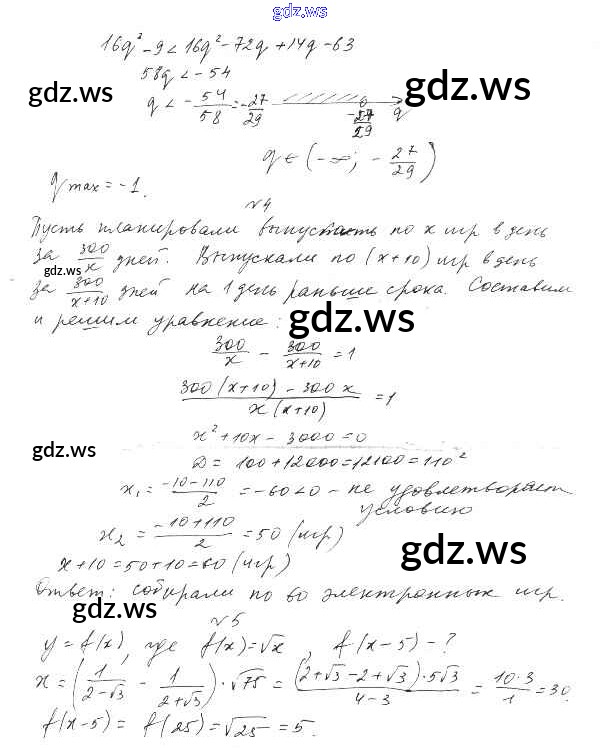 gdz.ws
16q² - 9 < 16q² - 72q + 14q - 63
58q < -54
gdz.ws
gdz.ws
q < -54/58 = -27/29
-27/29 q
q ∈ (-∞; -27/29)
q max = -1.
№4
Пусть планировали выпускать по x игр в день
за 300/x дней. Выпускали по (x+10) игр в день
gdz.ws
за 300/(x+10) дней на 1 день раньше срока. Составим
и решим уравнение:
gdz.ws
300/x - 300/(x+10) = 1
(300(x+10) - 300x)/(x(x+10)) = 1
x² + 10x - 3000 = 0
gdz.ws
D = 100 + 12000 = 12100 = 110²
x₁ = (-10-110)/2 = -60 < 0 - не удовлетворяет
условию
x₂ = (-10+110)/2 = 50 (игр)
gdz.ws
x + 10 = 50 + 10 = 60 (игр)
Ответ: собирали по 60 электронных игр.
gdz.ws
№5
y = f(x), где f(x) = √x, f(x-5) - ?
x = (1/(2-√3) - 1/(2+√3)) · √75 = ((2+√3-2+√3)·5√3)/(4-3) = (10·3)/1 = 30.
f(x-5) = f(25) = √25 = 5.
gdz.ws